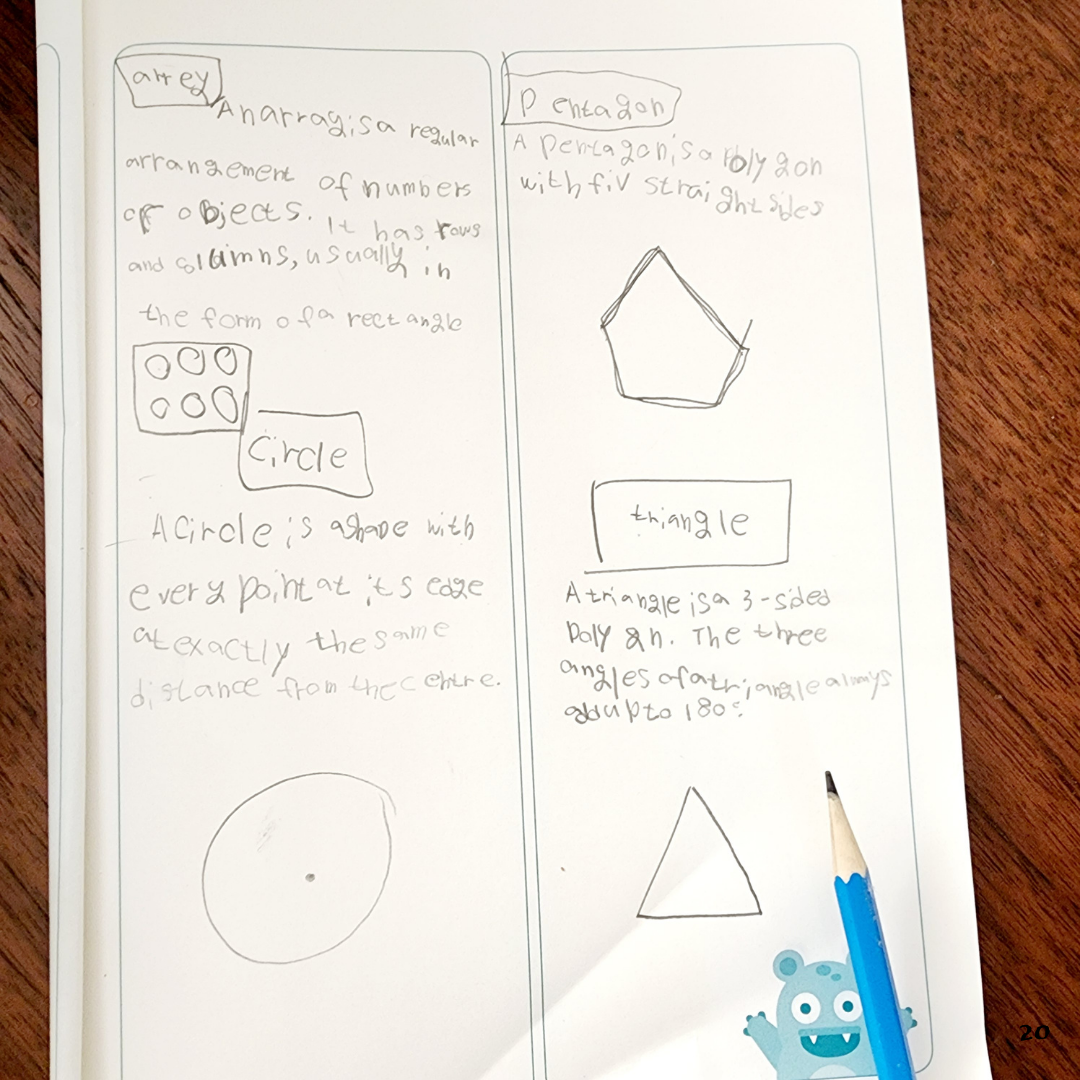 arrey
An arrag is a regular
arrangement of numbers
or objects. It has rows
and columns, usually in
the form of a rectangle
Circle
A Circle is a shape with
every point at it's edge
at exactly the same
distance from the centre.
Pentagon
A pentagon is a polygon
with fiv straight sides
triangle
A triangle is a 3-sided
Polygn. The three
angles of a triangle always
add up to 180°
20